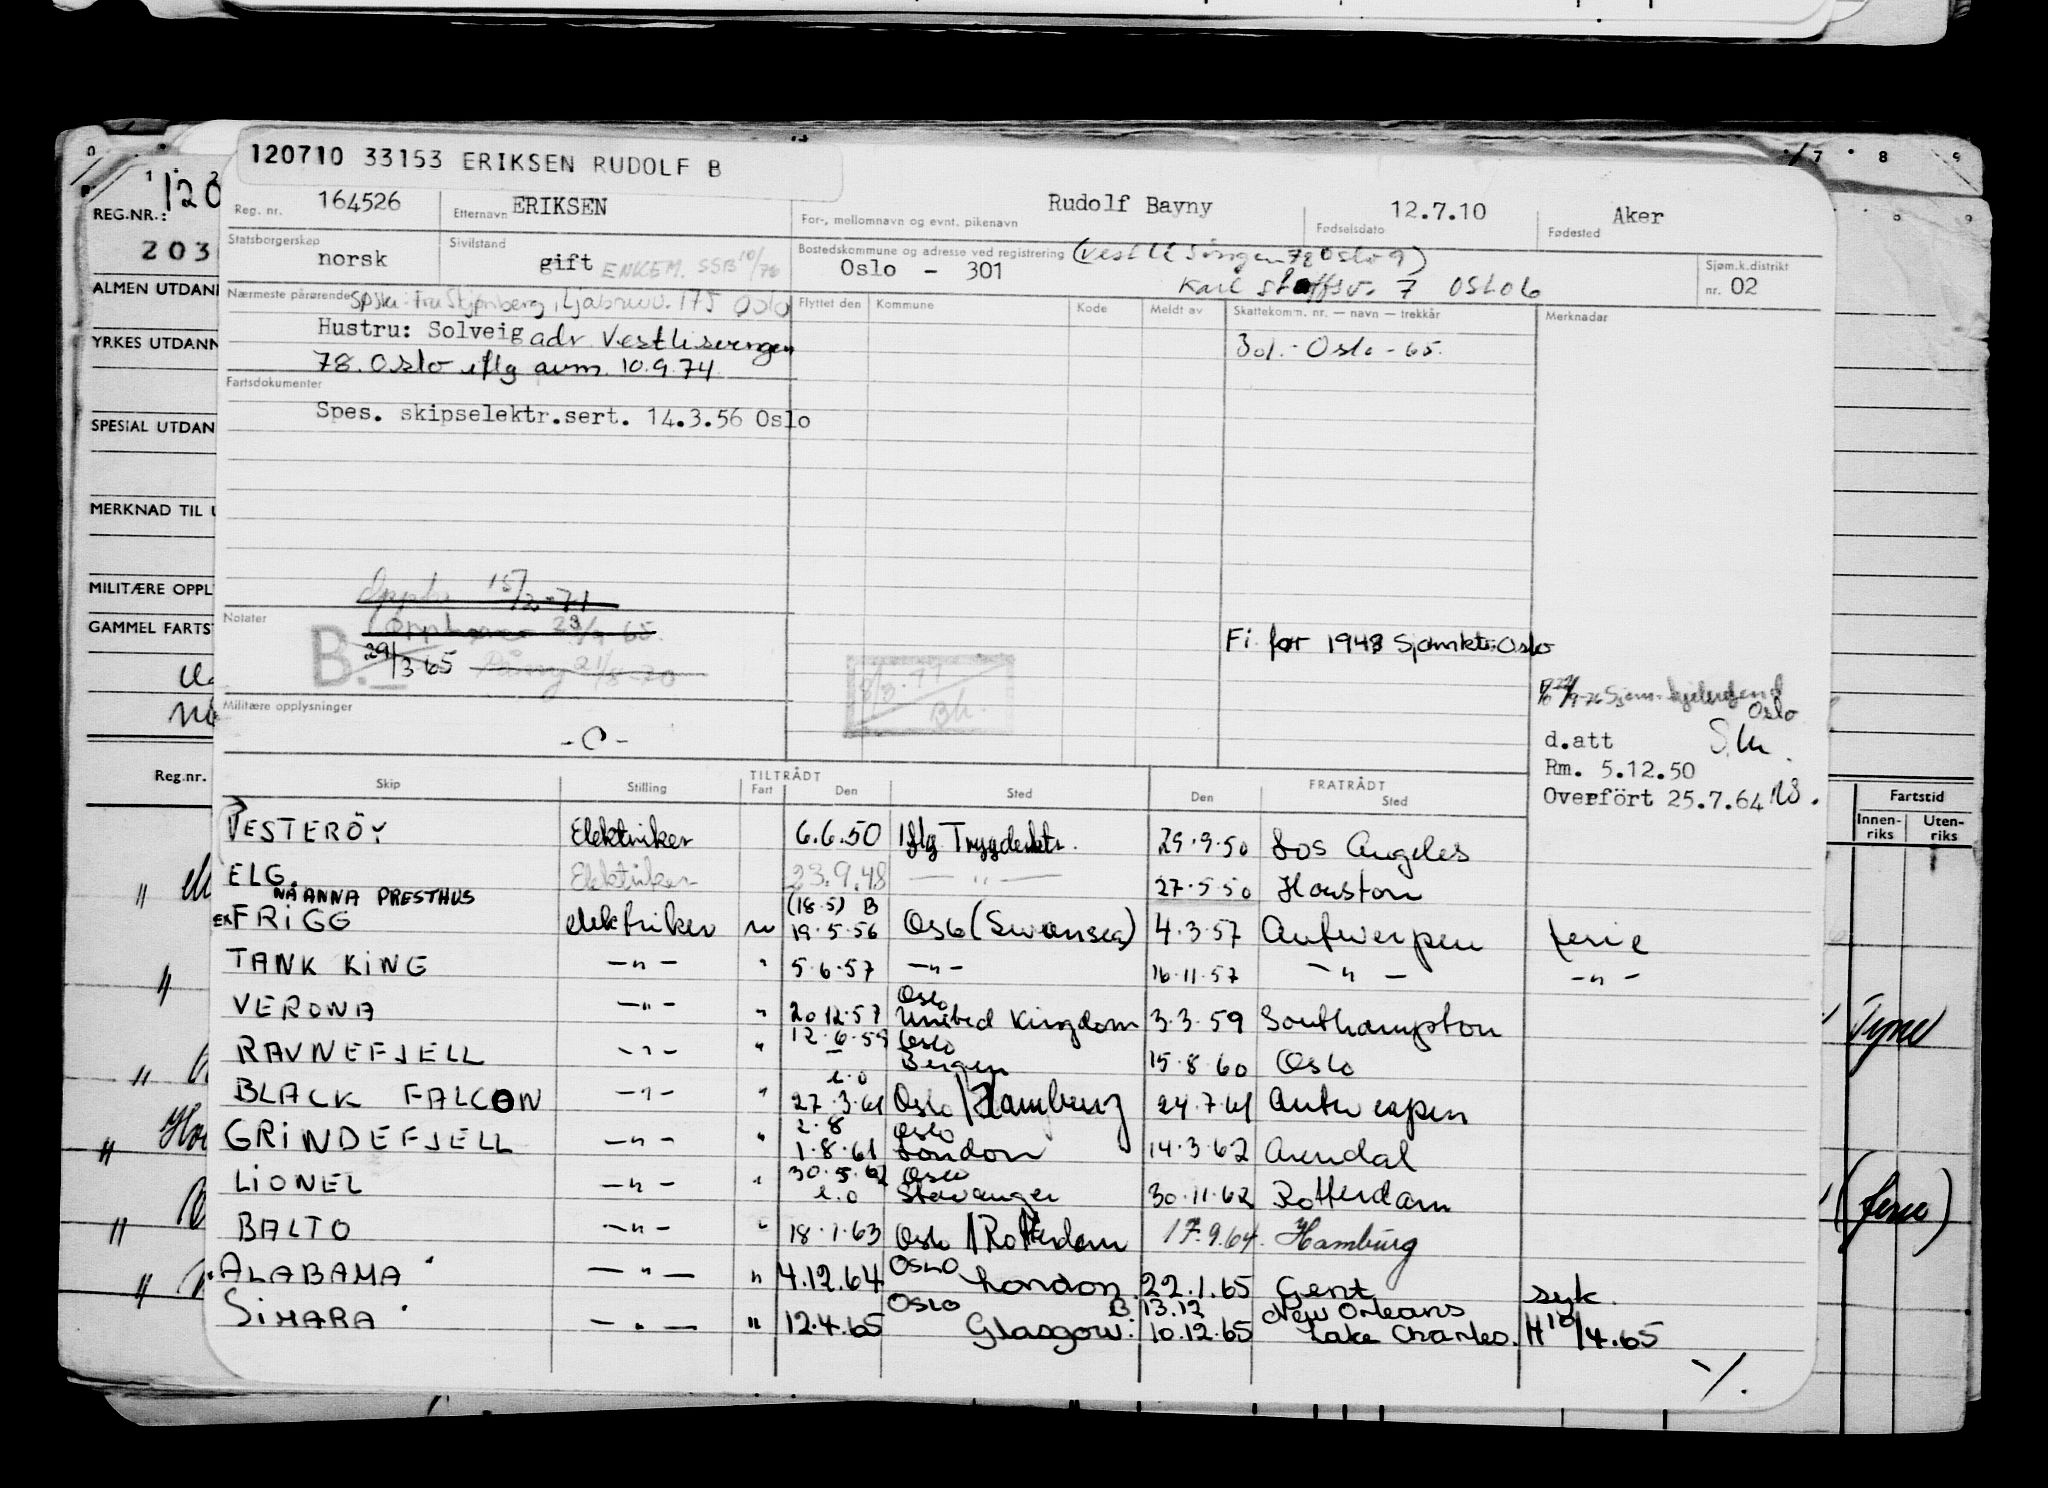 120710 33153 ERIKSEN RUDOLF B
Reg. nr. 164526 Etternavn ERIKSEN For-, mellomnavn og evnt. pikenavn Rudolf Bayny Fødselsdato 12.7.10 Fødested Aker
Statsborgerskap norsk Sivilstand gift ENKEM. SSB 10/76 Bostedskommune og adresse ved registrering Oslo - 301 (Vestlisvingen 78 Oslo 9)
Karl Staffsv. 7 OSLO 6 Sjøm.k.distrikt nr. 02
Nærmeste pårørende Ljabruv. 175 Oslo
Hustru: Solveig adr Vestlisvingen
78. Oslo iflg avm. 10.9.74.
Flyttet den Kommune Kode Meldt av Skattekomm. nr. — navn — trekkår Merknadar
301.- Oslo - 65.
Fartsdokumenter
Spes. skipselektr.sert. 14.3.56 Oslo
15/2-71
Notater
B. 29/3 65
23/ 65.
21/8-70
8/3.77
Bh.
Fi. før 1948 Sjømktr. Oslo
Oslo
d.att
Rm. 5.12.50
Overført 25.7.64
Militære opplysninger
- O -
Skip Stilling TILTRÅDT Fart Den Sted FRATRÅDT Den Sted
VESTERÖY Elektriker 6.6.50 Iflg Trygdektr. 29.9.50 Los Angeles
ELG Elektriker 23.9.48 — " — 27.5.50 Houston
NÅ ANNA PRESTHUS (18.5) B
EX FRIGG elektriker u 19.5.56 Oslo (Swansea) 4.3.57 Antwerpen ferie
TANK KING — " — " 5.6.57 — " — 16.11.57 — " — — " —
VERONA — " — " 20.12.57 Oslo United Kingdom 3.3.59 Southampton
RAVNEFJELL — " — " 12.6.59 Oslo Bergen 15.8.60 Oslo
BLACK FALCON — " — " 27.3.61 Oslo / Hamburg 24.7.61 Antwerpen
GRINDEFJELL — " — " 2.8 1.8.61 Oslo London 14.3.62 Arendal
LIONEL — " — " 30.5.62 Oslo Stavanger 30.11.62 Rotterdam
BALTO — " — " 18.1.63 Oslo / Rotterdam 17.9.64. Hamburg
ALABAMA — " — " 4.12.64 OSLO London. 22.1.65 Gent syk.
SIMARA — " — " 12.4.65 OSLO Glasgow. B 13.12 10.12.65 New Orleans Lake Charles. H 10/4.65
%.
REG.NR.: 120
203
ALMEN UTDAN
YRKES UTDANN
SPESIAL UTDAN
MERKNAD TIL U
MILITÆRE OPPL
GAMMEL FARTS
Reg.nr.
7 8 9
Fartstid
Innen-riks Uten-riks
Tyne
(ferie)